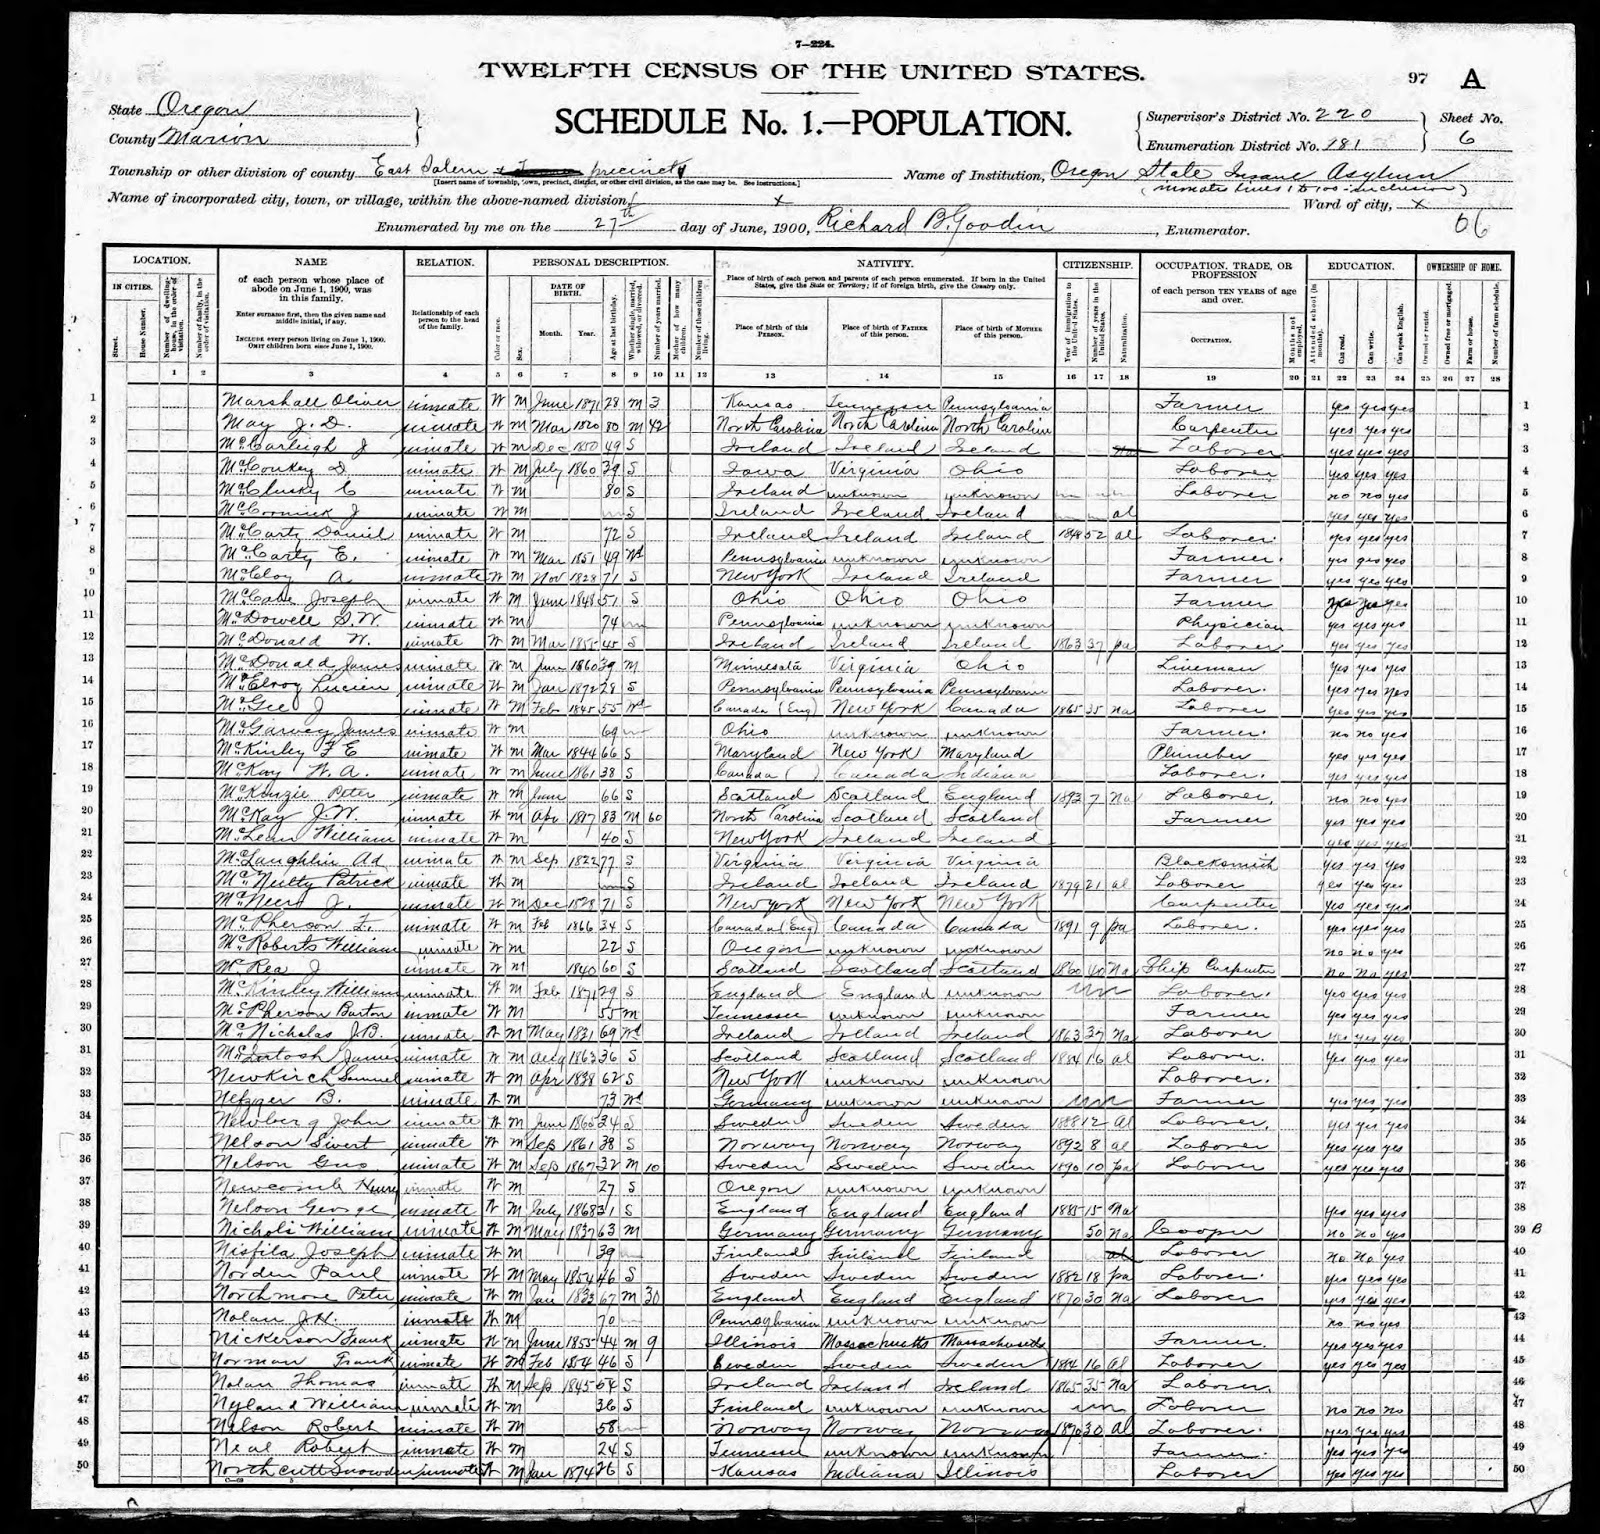 7—224.
TWELFTH CENSUS OF THE UNITED STATES.
97 A
State Oregon
County Marion
SCHEDULE No. 1.—POPULATION.
Supervisor's District No. 220
Enumeration District No. 181
Sheet No. 6
Township or other division of county East Salem precinct
[Insert name of township, town, precinct, district, or other civil division, as the case may be. See instructions.]
Name of Institution, Oregon State Insane Asylum
(inmates lines 1 to 100 inclusive)
Name of incorporated city, town, or village, within the above-named division, x
Ward of city, x
Enumerated by me on the 27th day of June, 1900, Richard B. Goodin, Enumerator.
66
LOCATION. NAME RELATION. PERSONAL DESCRIPTION. NATIVITY. CITIZENSHIP. OCCUPATION, TRADE, OR PROFESSION EDUCATION. OWNERSHIP OF HOME.
IN CITIES.
Street.
House Number.
Number of dwelling-house, in the order of visitation.
Number of family, in the order of visitation.
of each person whose place of abode on June 1, 1900, was in this family.
Enter surname first, then the given name and middle initial, if any.
INCLUDE every person living on June 1, 1900.
OMIT children born since June 1, 1900.
Relationship of each person to the head of the family.
Color or race.
Sex.
DATE OF BIRTH.
Month. Year.
Age at last birthday.
Whether single, married, widowed, or divorced.
Number of years married.
Mother of how many children.
Number of these children living.
Place of birth of each person and parents of each person enumerated. If born in the United States, give the State or Territory; if of foreign birth, give the Country only.
Place of birth of this PERSON.
Place of birth of FATHER of this person.
Place of birth of MOTHER of this person.
Year of immigration to the United States.
Number of years in the United States.
Naturalization.
of each person TEN YEARS of age and over.
OCCUPATION.
Months not employed.
Attended school (in months).
Can read.
Can write.
Can speak English.
Owned or rented.
Owned free or mortgaged.
Farm or house.
Number of farm schedule.
1 2 3 4 5 6 7 8 9 10 11 12 13 14 15 16 17 18 19 20 21 22 23 24 25 26 27 28
1 Marshall Oliver inmate W M June 1871 28 M 3 Kansas Tennessee Pennsylvania Farmer yes yes yes 1
2 May J. D. inmate W M Mar 1820 80 M 42 North Carolina North Carolina North Carolina Carpenter yes yes yes 2
3 McCarleigh J inmate W M Dec 1850 49 S Ireland Ireland Ireland Na Laborer yes yes yes 3
4 McConkey D inmate W M July 1860 39 S Iowa Virginia Ohio Laborer yes yes yes 4
5 McClusky C inmate W M 80 S Ireland unknown unknown un un Laborer no no yes 5
6 McCormick J inmate W M un S Ireland Ireland Ireland al yes yes yes 6
7 McCarty Daniel inmate W M 72 S Ireland Ireland Ireland 1848 52 al Laborer yes yes yes 7
8 McCarty E. inmate W M Mar 1851 49 Wd Pennsylvania unknown unknown Farmer yes yes yes 8
9 McCloy A inmate W M Nov 1828 71 S New York Ireland Ireland Farmer yes yes yes 9
10 McCabe Joseph inmate W M June 1848 51 S Ohio Ohio Ohio Farmer yes yes yes 10
11 McDowell S. W. inmate W M 74 un Pennsylvania unknown unknown Physician yes yes yes 11
12 McDonald W. inmate W M Mar 1855 45 S Ireland Ireland Ireland 1863 37 pa Laborer yes yes yes 12
13 McDonald James inmate W M June 1860 39 M Minnesota Virginia Ohio Lineman yes yes yes 13
14 McElroy Lucien inmate W M Jan 1872 28 S Pennsylvania Pennsylvania Pennsylvania Laborer yes yes yes 14
15 McGee J inmate W M Feb 1845 55 Wd Canada (Eng) New York Canada 1865 35 na Laborer yes yes yes 15
16 McGarvey James inmate W M 69 un Ohio unknown unknown Farmer no no yes 16
17 McKinley F E inmate W M Mar 1844 66 S Maryland New York Maryland Plumber yes yes yes 17
18 McKay W. A. inmate W M June 1861 38 S Canada ( ) Canada Indiana Laborer yes yes yes 18
19 McKenzie Peter inmate W M June 66 S Scotland Scotland England 1893 7 Na Laborer no no yes 19
20 McKay J. W. inmate W M Apr 1817 83 M 60 North Carolina Scotland Scotland Farmer yes yes yes 20
21 McLean William inmate W M 40 S New York Ireland Ireland yes yes yes 21
22 McLaughlin Ad inmate W M Sep 1822 77 S Virginia Virginia Virginia Blacksmith yes yes yes 22
23 McNeilty Patrick inmate W M un S Ireland Ireland Ireland 1879 21 al Laborer yes yes yes 23
24 McNeer J. inmate W M Dec 1828 71 S New York New York New York Carpenter yes yes yes 24
25 McPherson F. inmate W M Feb 1866 34 S Canada (Eng) Canada Canada 1891 9 pa Laborer yes yes yes 25
26 McRoberts William inmate W M 22 S Oregon unknown unknown no no yes 26
27 McRea J inmate W M 1840 60 S Scotland Scotland Scotland 1860 40 Na Ship Carpenter no no yes 27
28 McKinley William inmate W M Feb 1871 29 S England England unknown un Laborer yes yes yes 28
29 McPherson Burton inmate W M 55 m Tennessee unknown unknown Farmer yes yes yes 29
30 McNicholas J. B. inmate W M May 1831 69 Wd Ireland Ireland Ireland 1863 37 Na Laborer yes yes yes 30
31 McIntosh James inmate W M Aug 1863 36 S Scotland Scotland Scotland 1884 16 al Laborer yes yes yes 31
32 Newkirch Samuel inmate W M Apr 1838 62 S New York unknown unknown Laborer 32
33 Netzger B. inmate W M 73 Wd Germany unknown unknown un Farmer yes yes yes 33
34 Newberg John inmate W M June 1865 34 S Sweden Sweden Sweden 1888 12 al Laborer yes yes yes 34
35 Nelson Sivert inmate W M Sep 1861 38 S Norway Norway Norway 1892 8 al Laborer yes yes yes 35
36 Nelson Gus inmate W M Sep 1867 32 M 10 Sweden Sweden Sweden 1890 10 pa Laborer yes yes yes 36
37 Newcomb Henry inmate W M 27 S Oregon unknown unknown 37
38 Nelson George inmate W M July 1868 31 S England England England 1885 15 Na yes yes yes 38
39 Nichols William inmate W M May 1837 63 M Germany Germany Germany 50 Na Cooper no no yes 39 B
40 Nisfila Joseph inmate W M 39 un Finland Finland Finland al Laborer no no yes 40
41 Norden Paul inmate W M May 1854 46 S Sweden Sweden Sweden 1882 18 pa Laborer yes yes yes 41
42 Northmore Peter inmate W M Jan 1833 67 M 30 England England England 1870 30 Na Laborer yes yes yes 42
43 Nolan J. H. inmate W M 70 Pennsylvania unknown unknown no no yes 43
44 Nickerson Frank inmate W M June 1855 44 M 9 Illinois Massachusetts Massachusetts Farmer yes yes yes 44
45 Norman Frank inmate W M Feb 1854 46 S Sweden Sweden Sweden 1884 16 al Laborer yes yes yes 45
46 Nolan Thomas inmate W M Sep 1845 54 S Ireland Ireland Ireland 1865 35 Na Laborer 46
47 Nyland William inmate W M 36 S Finland unknown unknown un Laborer no no no 47
48 Nelson Robert inmate W M 58 un Norway Norway Norway 1870 30 al Laborer yes yes yes 48
49 Neal Robert inmate W M 24 S Tennessee unknown unknown Farmer yes yes yes 49
50 Northcutt Snowden inmate W M Jan 1874 26 S Kansas Indiana Illinois Laborer yes yes yes 50